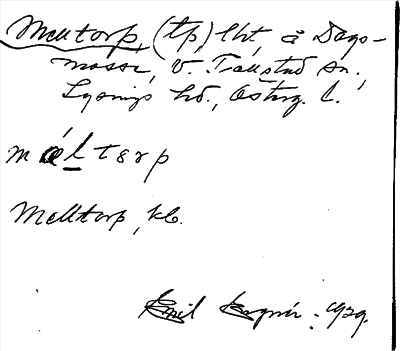 Melltorp, (tp) lht, å Dags-
mosse, V. Tollstad sn.,
Lysings hd., Österg. l.
mæltorp
Melltorp, kb.
Emil 1929.